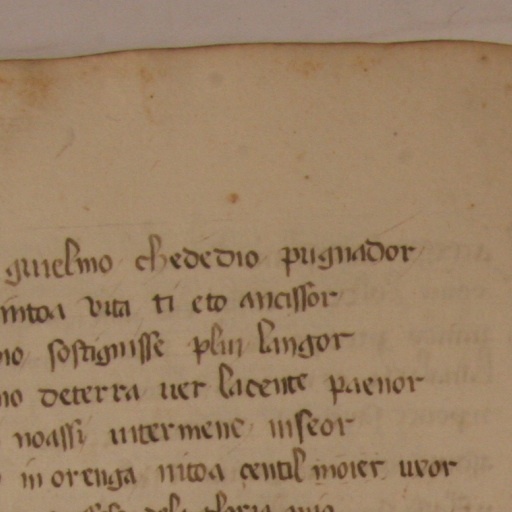 guielmo chededio pugnador
intoa vita ti eto ancissor
io sostignisse plui langor
no deterra uer lacente paenor
noassi intermene inseor
in orenga nitoa centil moier ueor
dela gloria